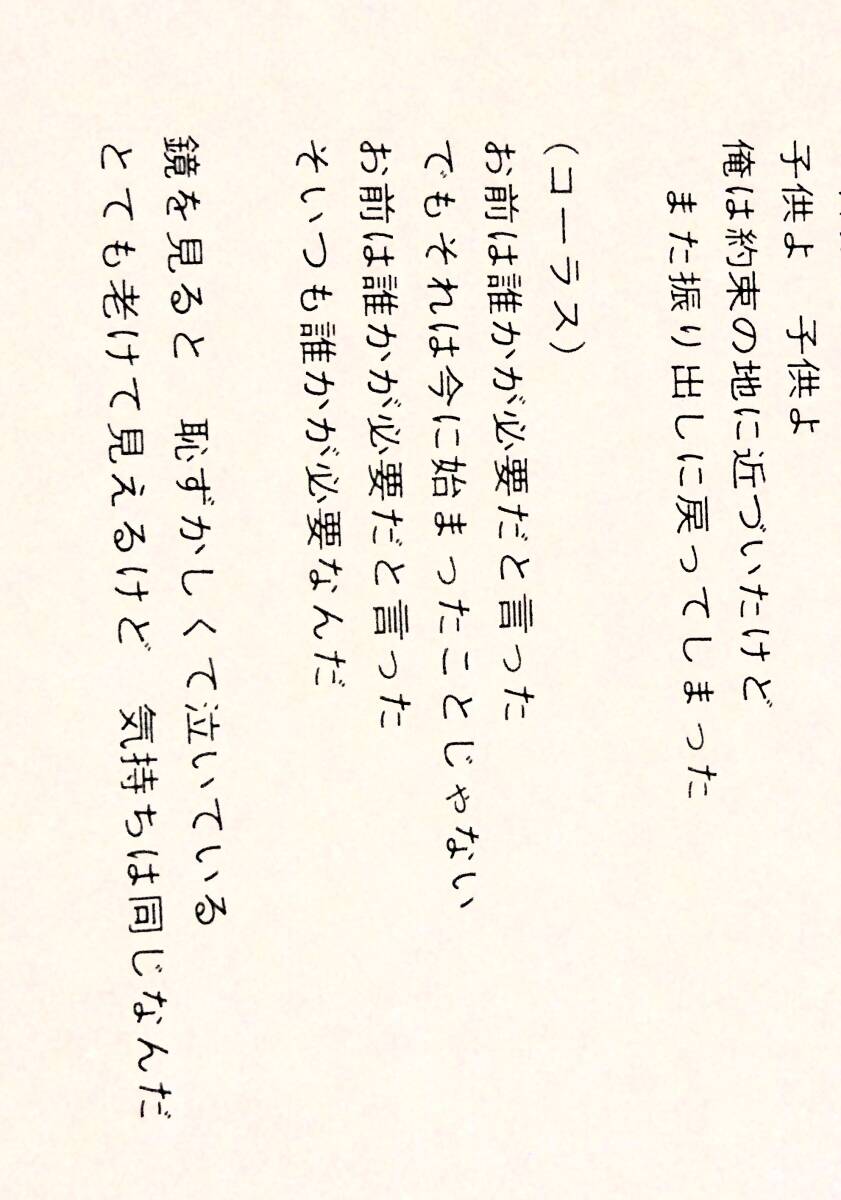 子供よ　子供よ
俺は約束の地に近づいたけど
また振り出しに戻ってしまった
(コーラス)
お前は誰かが必要だと言った
でもそれは今に始まったことじゃない
お前は誰かが必要だと言った
そいつも誰かが必要なんだ
鏡を見ると　恥ずかしくて泣いている
とても老けて見えるけど　気持ちは同じなんだ